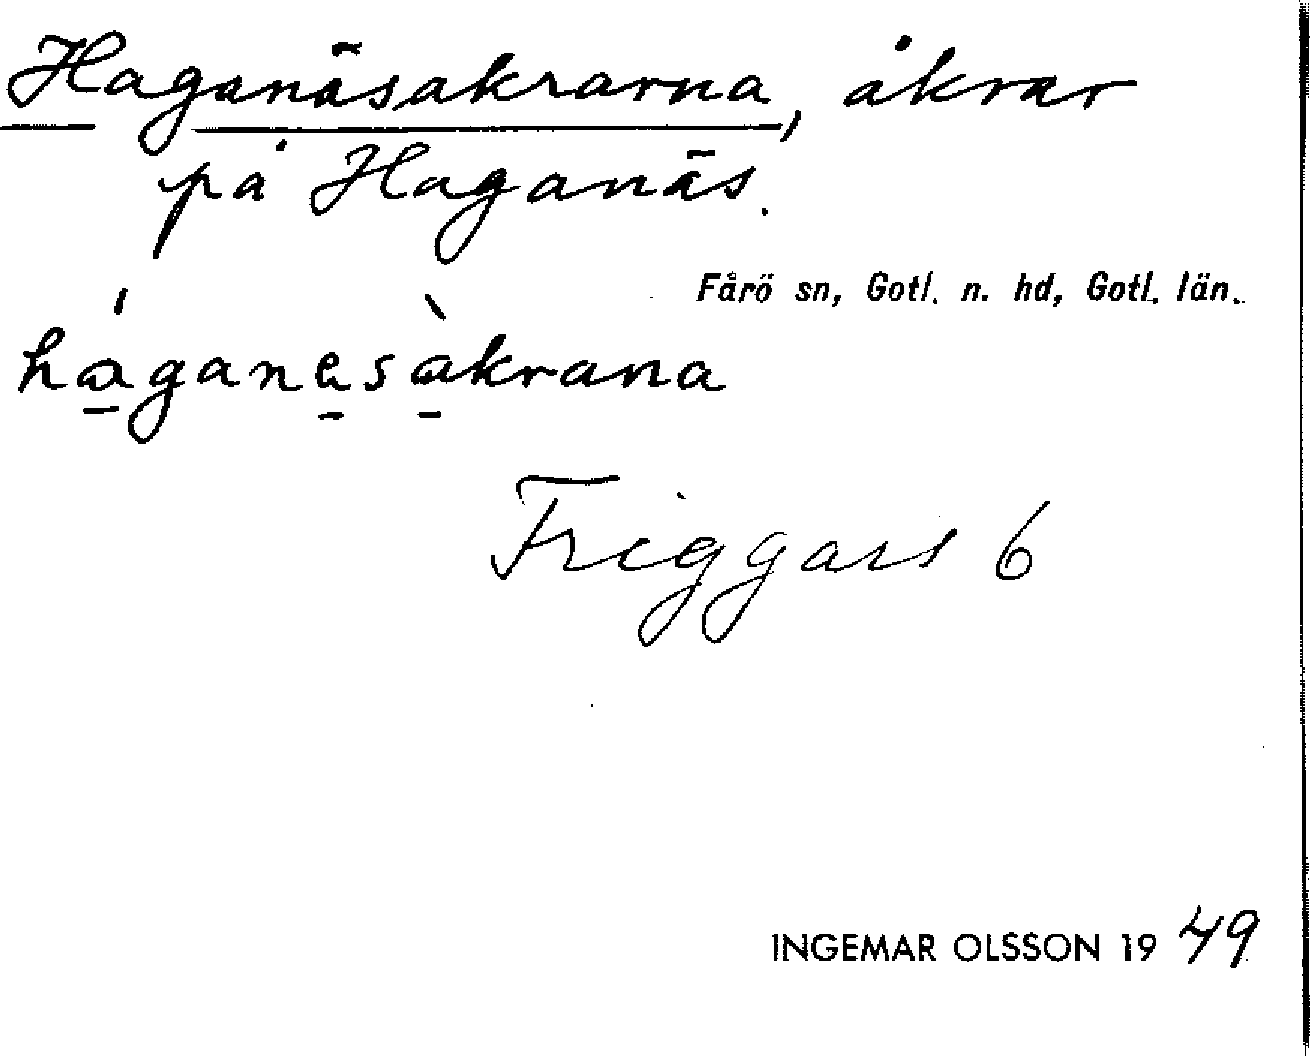 Haganäsakrarna, åkrar
på Haganäs.
Fårö sn, Gotl. n. hd, Gotl. län.
háganesàkrana
Friggars 6
INGEMAR OLSSON 1949